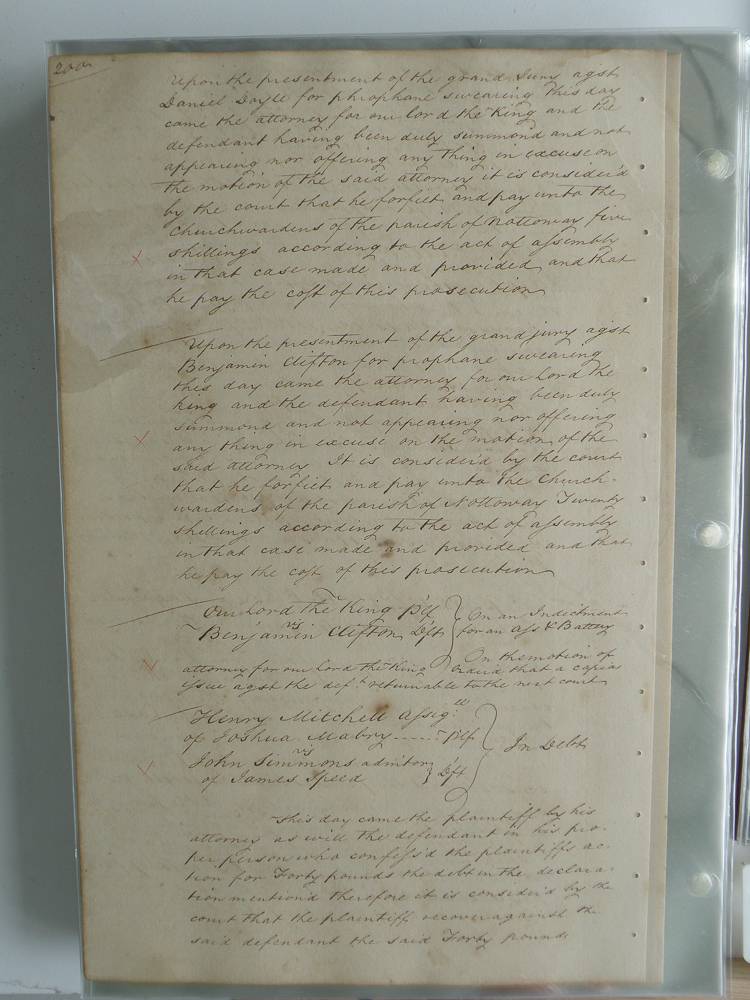 200
Upon the presentment of the grand Jury agst
Daniel Doyle for phrophane swearing This day
came the attorney for our lord the King and the
defendant having been duly summond and not
appearing nor offering any thing in excuse on
the motion of the said attorney it is consider'd
by the court that he forfiet and pay unto the
Churchwardens of the parish of Nottoway five
shillings according to the act of assembly
in that case made and provided and that
he pay the cost of this prosecution
Upon the presentment of the grand jury agst
Benjamin Clifton for prophane swearing
this day came the attorney for our Lord the
King and the defendant having been duly
summond and not appearing nor offering
any thing in excuse on the motion of the
said attorney It is consider'd by the court
that he forfiet and pay unto the Church-
wardens of the parish of Nottoway Twenty
shillings according to the act of assembly
in that case made and provided and that
he pay the cost of this prosecution
Our Lord the King Plf
vs
Benjamin Clifton Deft
On an Indictment
for an Ass & Battery
On the motion of
attorney for our Lord the King that a capias
issue agst the deft returnable to the next court
Henry Mitchell assig.ee
of Joshua Mabry Plf
vs
John Simmons admitor
of James Speed Dft
In Debt
This day came the plaintiff by his
attorney as will the defendant in his pro-
per person who confess'd the plaintiffs ac-
tion for Forty pounds the debt in the declara-
tion mention'd therefore it is consider'd by the
court that the plaintiff recover against the
said defendant the said Forty pounds